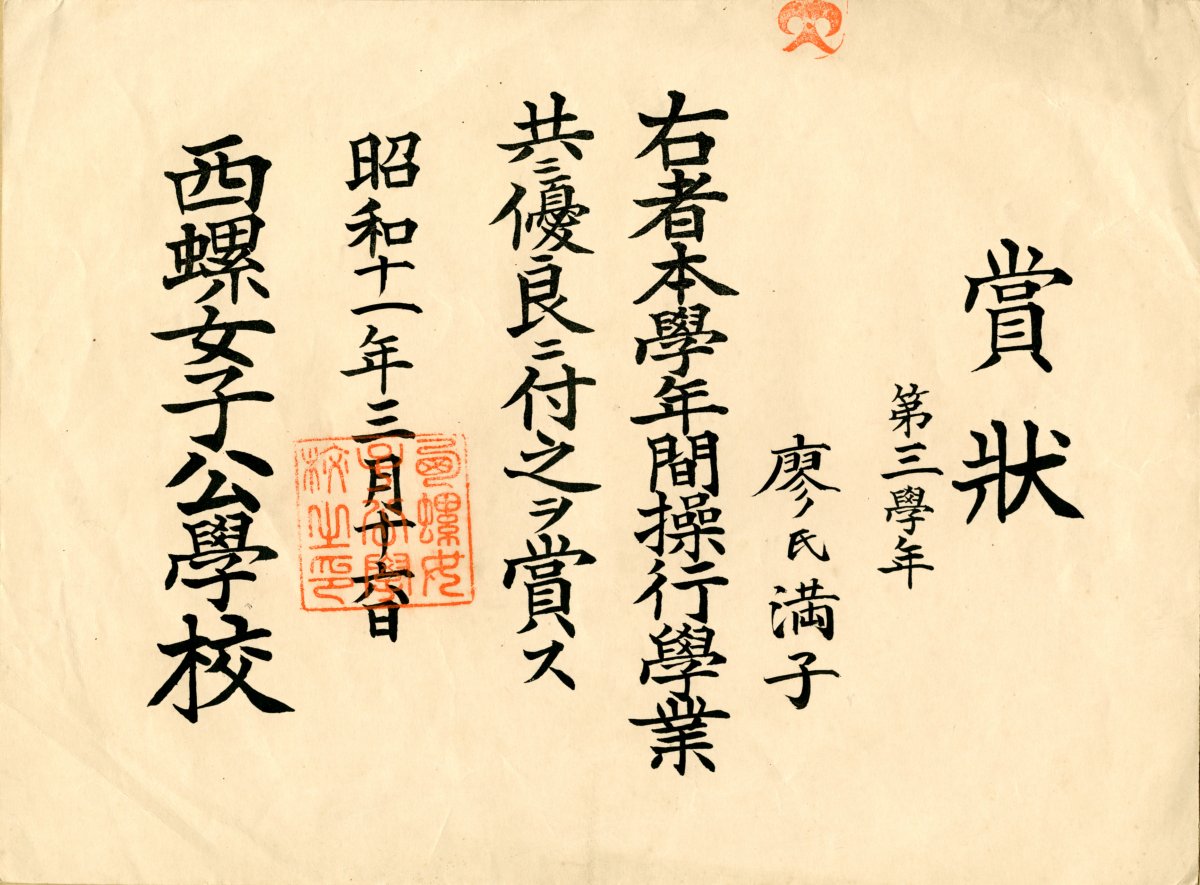 賞狀
第三學年
廖氏満子
右者本學年間操行學業
共ニ優良ニ付之ヲ賞ス
昭和十一年三月十六日
西螺女子公學校
西螺女
子公學
校之印